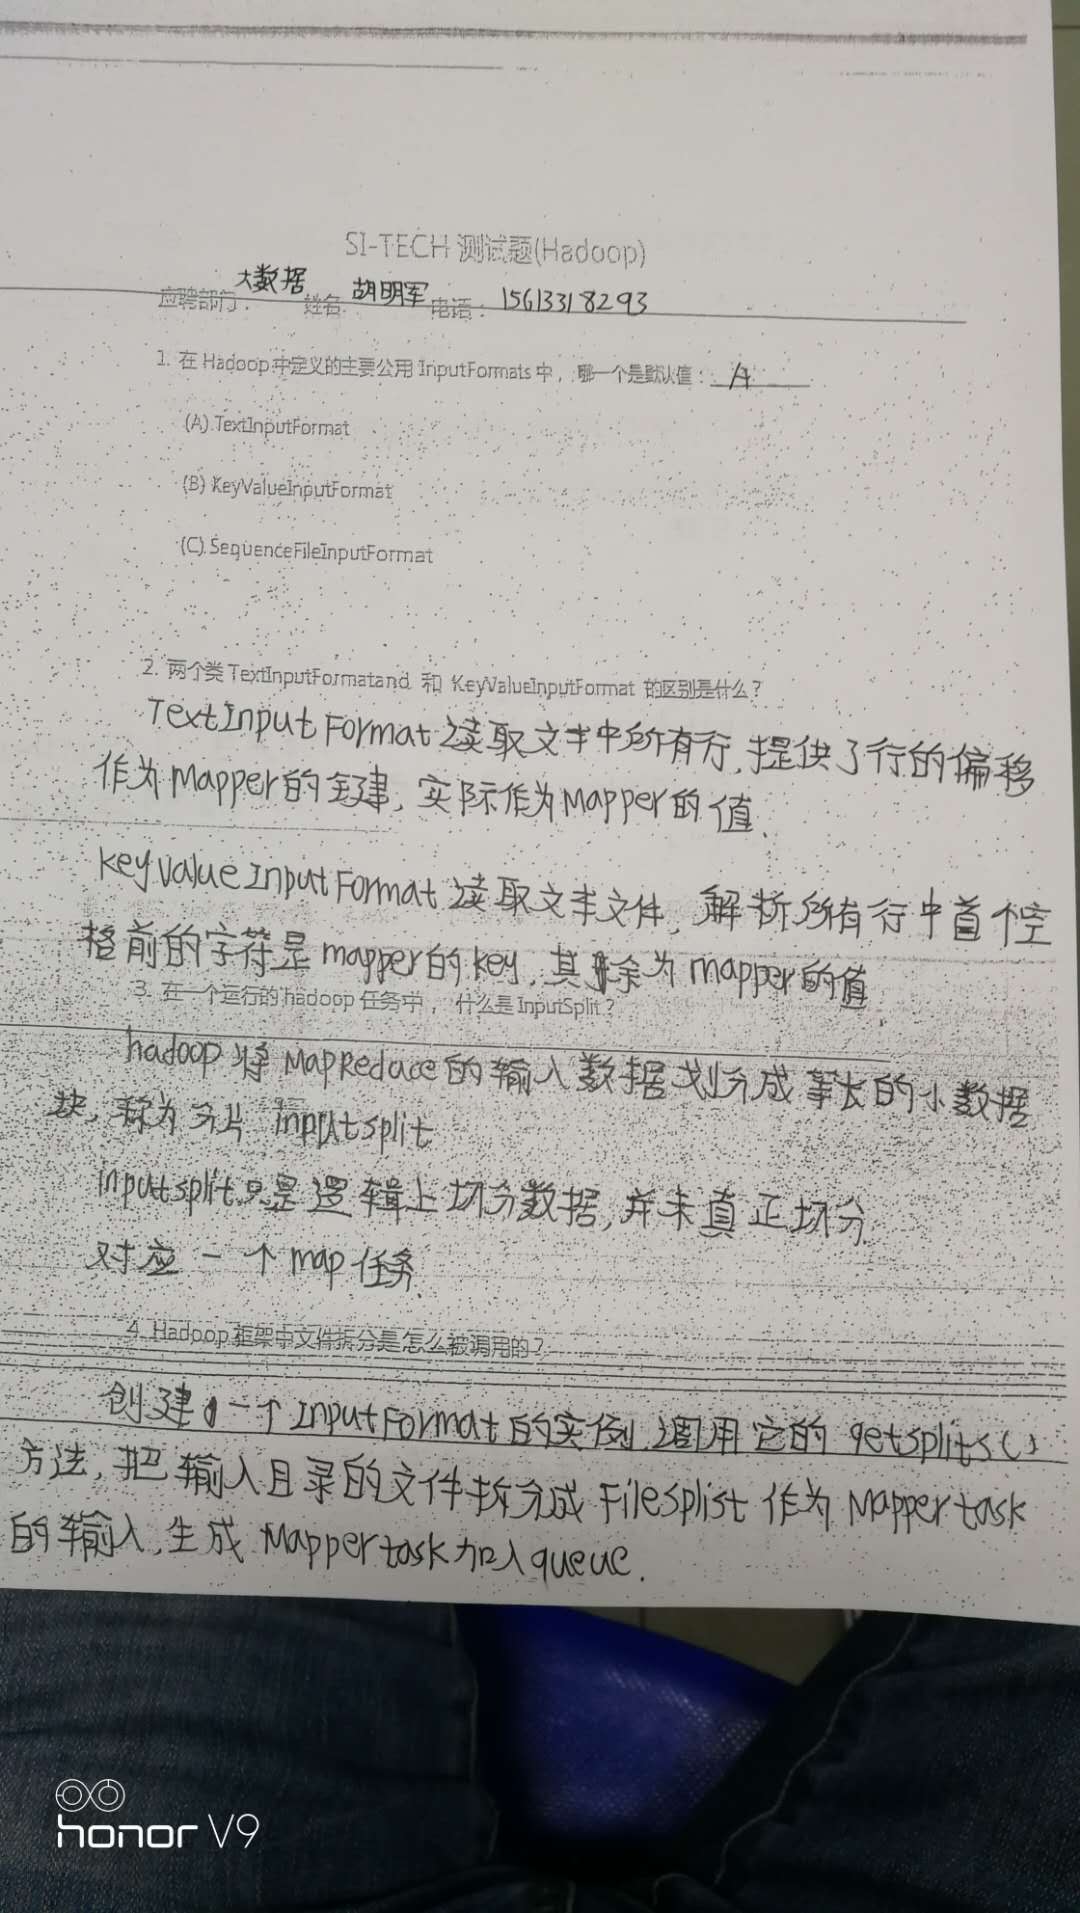 SI-TECH 测试题(Hadoop)
应聘部门: 大数据 姓名 胡明军 电话: 15613318293
1. 在 Hadoop 中定义的主要公用 InputFormats 中, 哪一个是默认值: A
(A) TextInputFormat
(B) KeyValueInputFormat
(C) SequenceFileInputFormat
2. 两个类 TextInputFormatand 和 KeyValueInputFormat 的区别是什么?
TextInputFormat 读取文本中所有行, 提供了行的偏移
作为 Mapper 的键, 实际作为 Mapper 的值.
KeyValueInputFormat 读取文本文件, 解析所有行中首个空
格前的字符是 mapper 的 key, 其剩余为 mapper 的值
3. 在一个运行的 hadoop 任务中, 什么是 InputSplit?
hadoop 将 MapReduce 的输入数据划分成等长的小数据
块, 称为分片 inputsplit
inputsplit 只是逻辑上切分数据, 并未真正切分
对应一个 map 任务.
4. Hadoop 框架中文件拆分是怎么被调用的?
创建一个 InputFormat 的实例, 调用它的 getsplits()
方法, 把输入目录的文件拆分成 FileSplist 作为 Mapper task
的输入, 生成 Mapper task 加入 queue.
honor V9